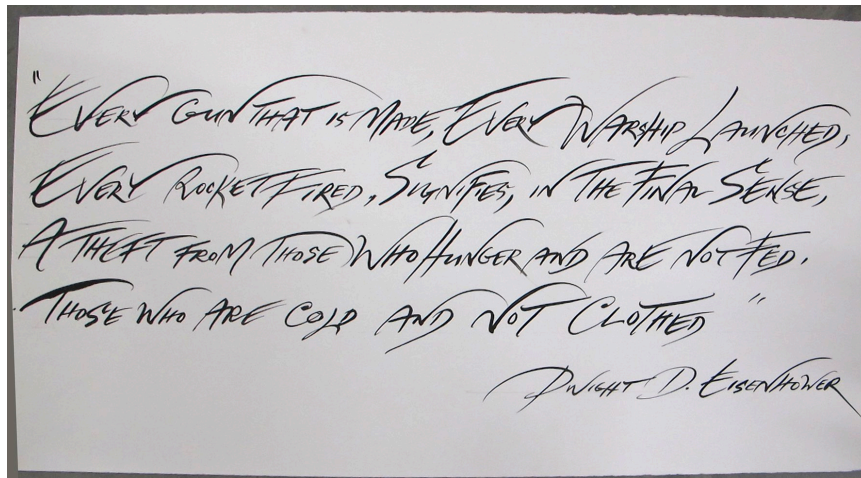 "EVERY GUN THAT IS MADE, EVERY WARSHIP LAUNCHED,
EVERY ROCKET FIRED, SIGNIFIES, IN THE FINAL SENSE,
A THEFT FROM THOSE WHO HUNGER AND ARE NOT FED.
THOSE WHO ARE COLD AND NOT CLOTHED"
DWIGHT D. EISENHOWER